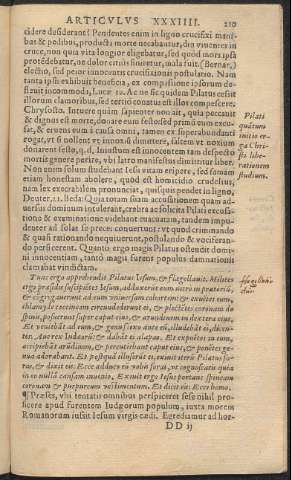 ARTICVLVS XXXIIII. 210
cidere desiderant! Pendentes enim in ligno crucifixi mani-
bus & pedibus, producta morte necabantur, diu viuentes in
cruce, non quia vita longior eligebatur, sed quòd mors ipsa
protēdebatur, ne dolor citiùs finiretur, mala fuit.
electio, sed peior innocentis crucifixionis postulatio. Nam
tanta ipsis exhibuit beneficia, ex compassione ipsorum de-
Ac ne siquidem Pilatus cessit
illorum clamoribus, sed tertiò conatus est illos compescere.
Chrysosto. Intuere quàm sapienter nouit, quia peccauit
& dignus est morte, donare eum festo sed primùm eum excu-
sat, & eruens eum à causa omni, tamen ex superabundanti
rogat, vt si nollent vt innoxiū dimittere, saltem vt noxium
donarent festo, q. d. iniustum est innocentem tam despecto
mortis genere perire, vbi latro manifestus dimittitur liber.
Non enim solùm studebant Iesu vitam eripere, sed famam
etiam honestam abolere, quòd est homicidio crudelius,
nam sex execrabilem pronunciat, quisquis pendet in ligno,
Deuter. 21. Iudæi totam suam accusationem quam aduer-
sus dominum instituerant, crebra ac solicita Pilati excus-
tione & examinatione viderant euacuatam, tandem impu-
denter ad solas se preces conuertunt: vt quod criminando
& quasi rationando nequiuerunt, postulando & vociferan-
do perficerent. Quantò ergo magis Pilatus ostendit domi-
ni innocentiam, tantò magis furens populus damnationis
clamabat vindictam.
Tunc ergo apprehendit Pilatus Iesum, & flagellauit. Milites
ergo præsidis suscipiẽtes Iesum, adduxerunt eum intrò in prætoriũ,
& congregauerunt ad eum vniuersam cohortem: & exuentes eum,
chlamydẽ coccineam circundederunt ei, & plectẽtes coronam de
spinis, posuerunt super caput eius, & arundinem in dextera eius.
Et veniebāt ad eum, & genu flexo ante eũ, illudebāt ei, dicen-
tes. Auerex Iudæorũ: & dabāt ei alapas. Et expuẽtes in eum,
accipiebāt arũdinem, & percutiebant caput eius, & ponẽtes ge-
nua adorabant. Et postquā illuserũt ei, exiuit iterũ Pilatus fo-
ras, & dixit eis: Ecce adduco eũ vobis foràs, vt cognoscatis quia
in eo nullā causam inuenio. Exiuit ergo Iesus portans spineam
coronam & purpureum vestimentum. Et dicit eis: Ecce homo.
¶ Præses, vbi tentatis omnibus perspiceret sese nihil pro-
ficere apud furentem Iudæorum populum, iuxta morem
Romanorum iussit Iesum virgis cædi. Egrediamur ad hor-
DD ij
Pilati
quātum
initio er-
ga Chri-
sti libe-
rationem
studium.